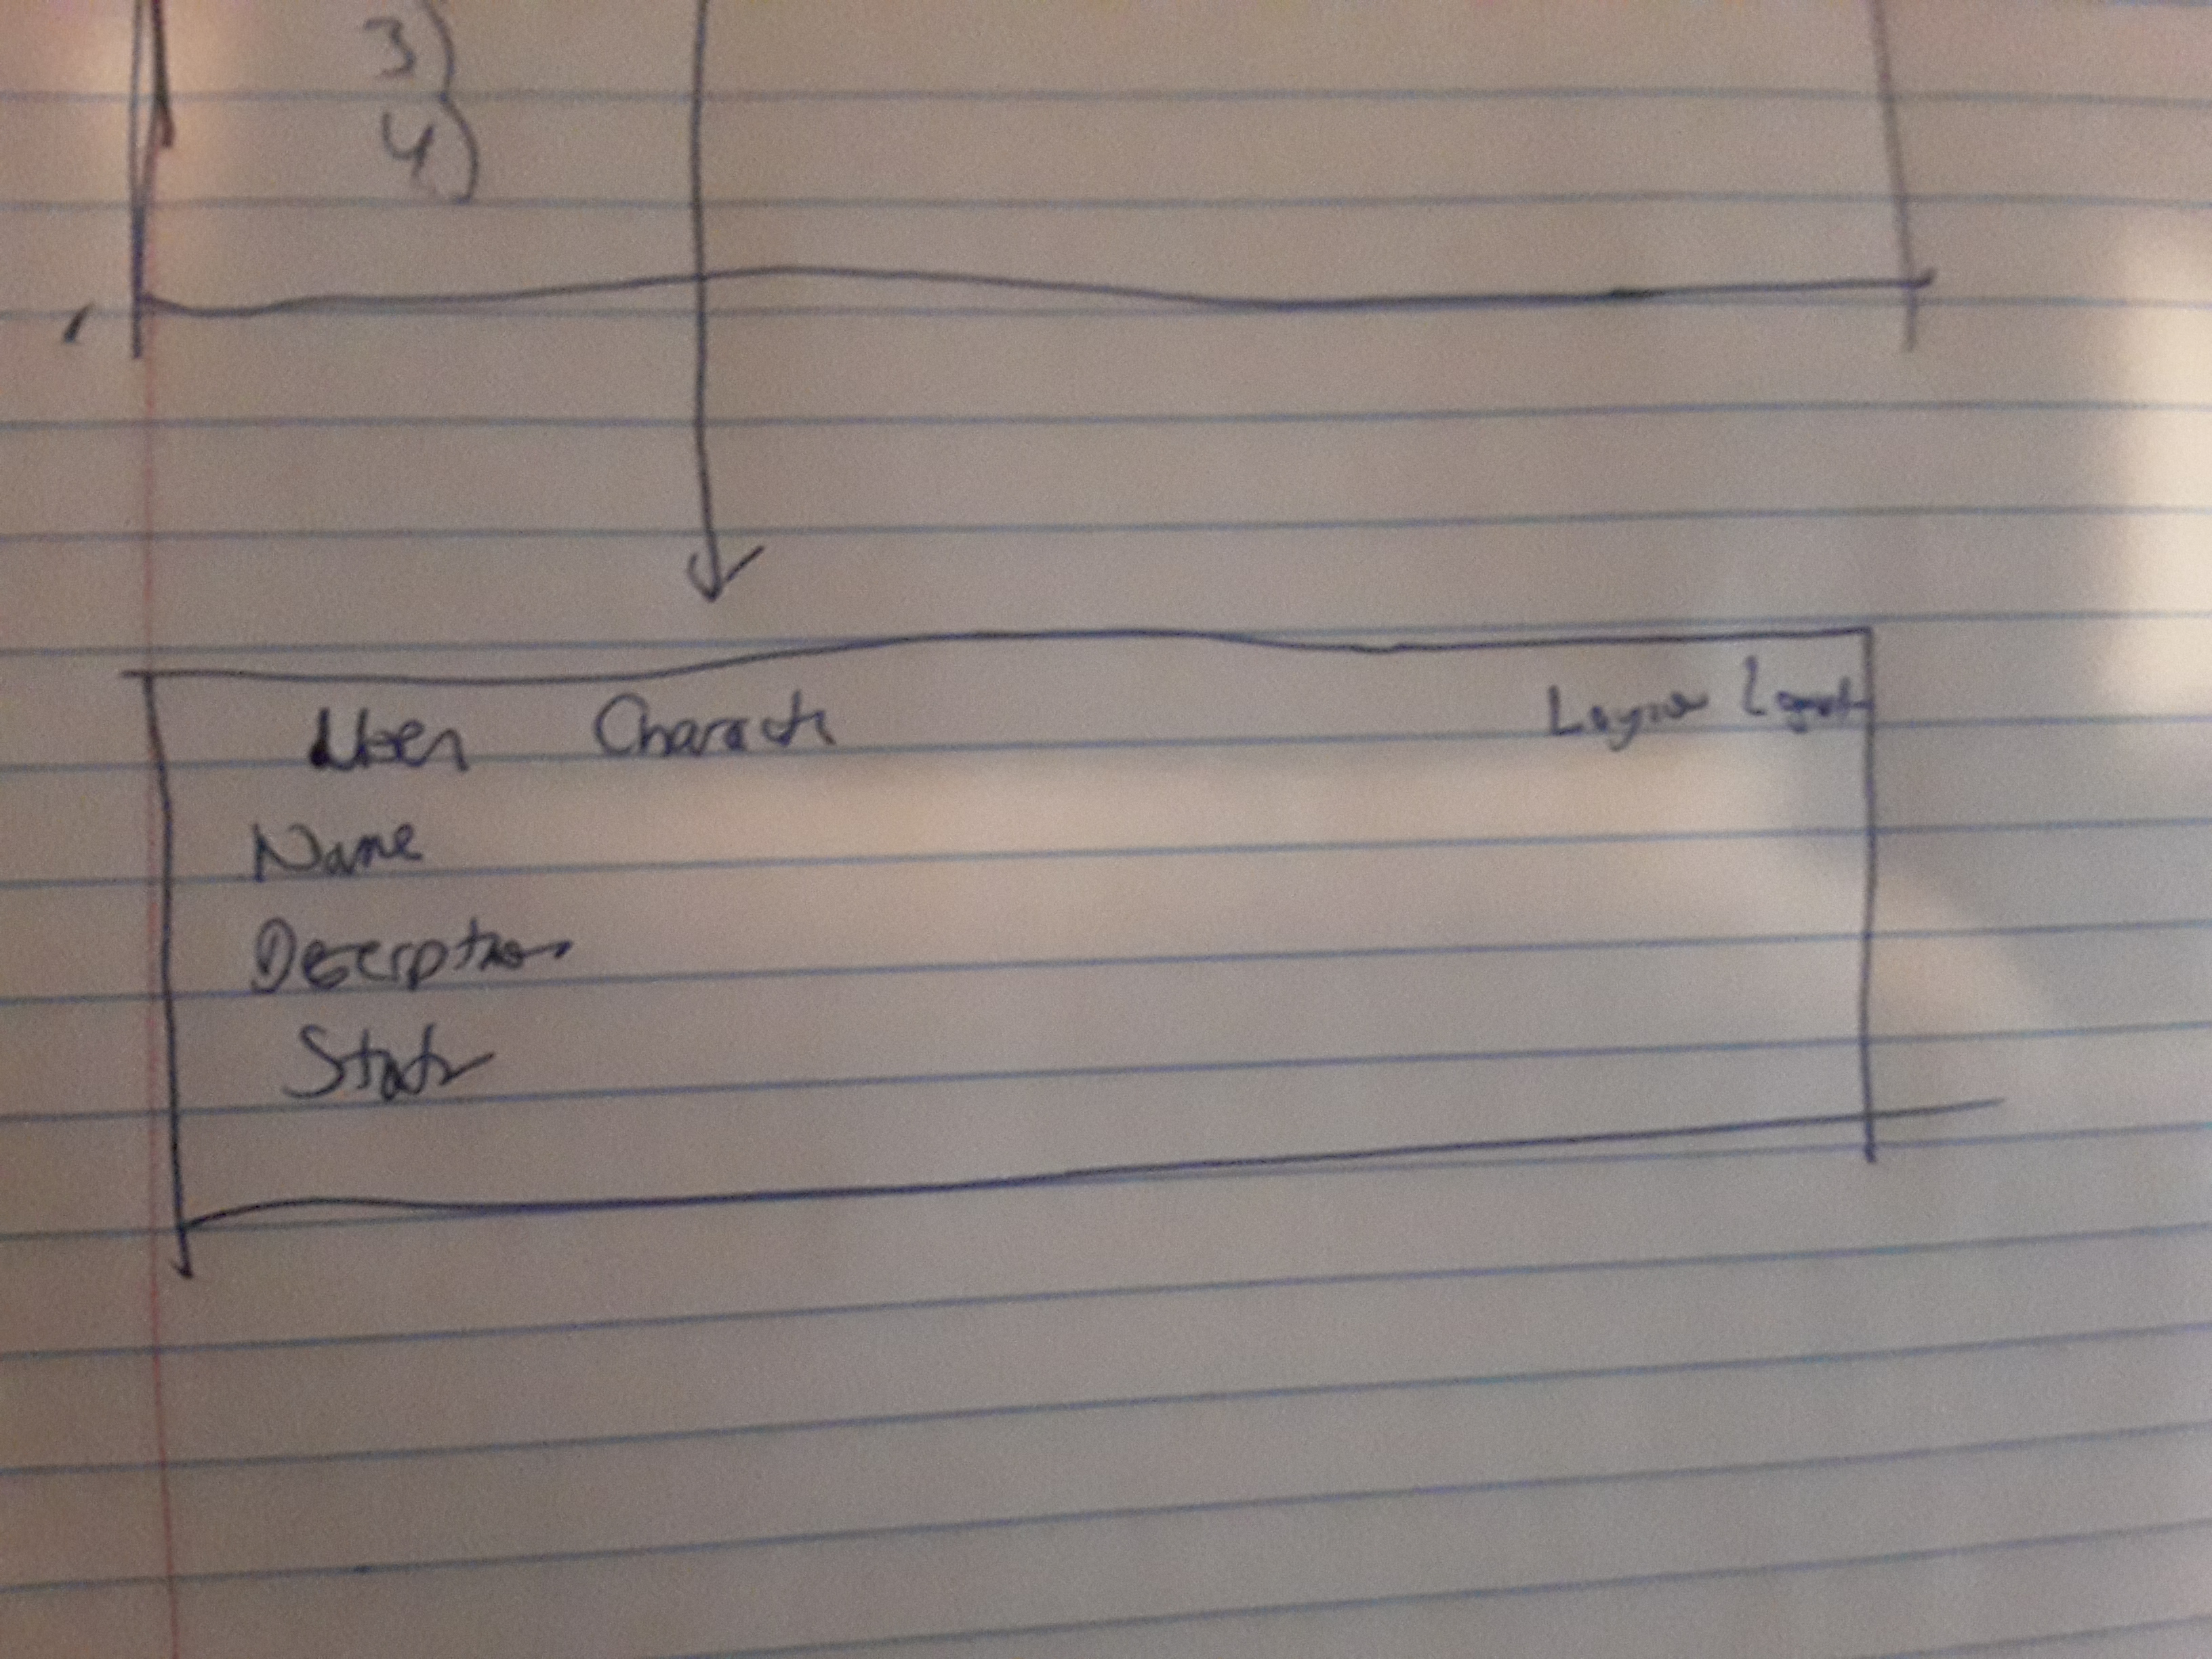 3)
4)
User Charactr Login Logout
Name
Description
Stats